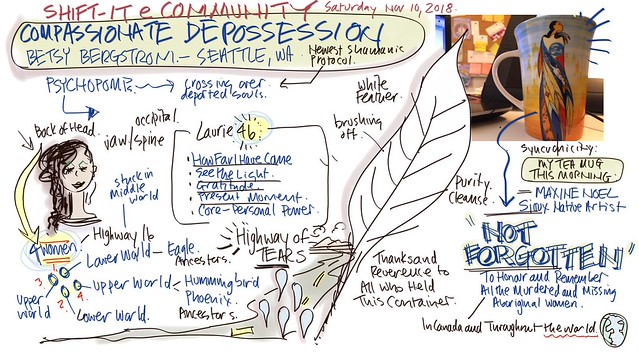 SHIFT-IT e COMMUNITY
Saturday Nov 10, 2018.
COMPASSIONATE DEPOSSESSION
BETSY BERGSTROM - SEATTLE, WA
Newest Shamanic
Protocol.
PSYCHOPOMPs
crossing over
departed souls.
Back of Head.
occipital
jaw/spine
stuck in
middle
world
Laurie 46
• How Far I Have Come
• See the Light.
• Gratitude.
• Present Moment.
• Core-Personal Power.
White
Feather.
brushing
off.
Purity.
Cleanse.
syncronicity:
MY TEA MUG
THIS MORNING.
= MAXINE NOEL
Sioux Native Artist
"NOT
FORGOTTEN"
To Honor and Remember
All the Murdered and Missing
Aboriginal Women.
In Canada and Throughout the World.
4 women.
Highway 16
Lower World - Eagle.
Ancestors.
Highway of
TEARS
3.
1.
2.
4.
Upper
World
Upper World - Hummingbird
Phoenix.
Ancestors.
Lower World.
Thanks and
Reverence to
All Who Held
This Container.